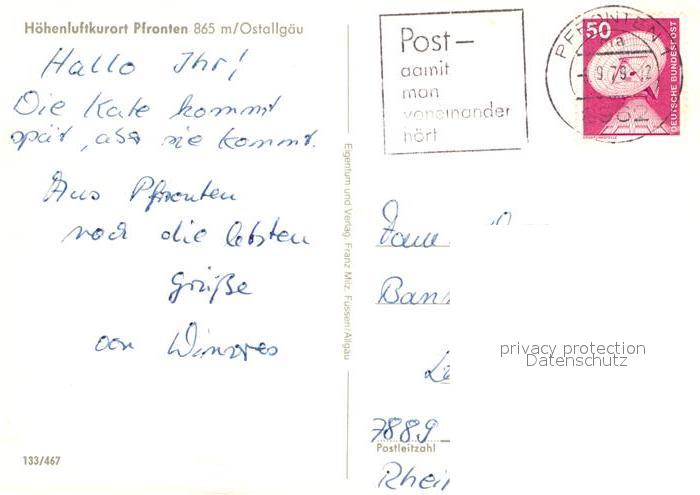 Höhenluftkurort Pfronten 865 m/Ostallgäu
Hallo Ihr!
Die Kate kommt
spät, aber sie kommt.
Aus Pfronten
noch die letzten
Grüße
von
133/467
Eigentum und Verlag Franz Milz, Füssen/Allgäu
Post—
damit
man
voneinander
hört
PFRONTEN 1
50
DEUTSCHE BUNDESPOST
7889
Postleitzahl
privacy protection
Datenschutz